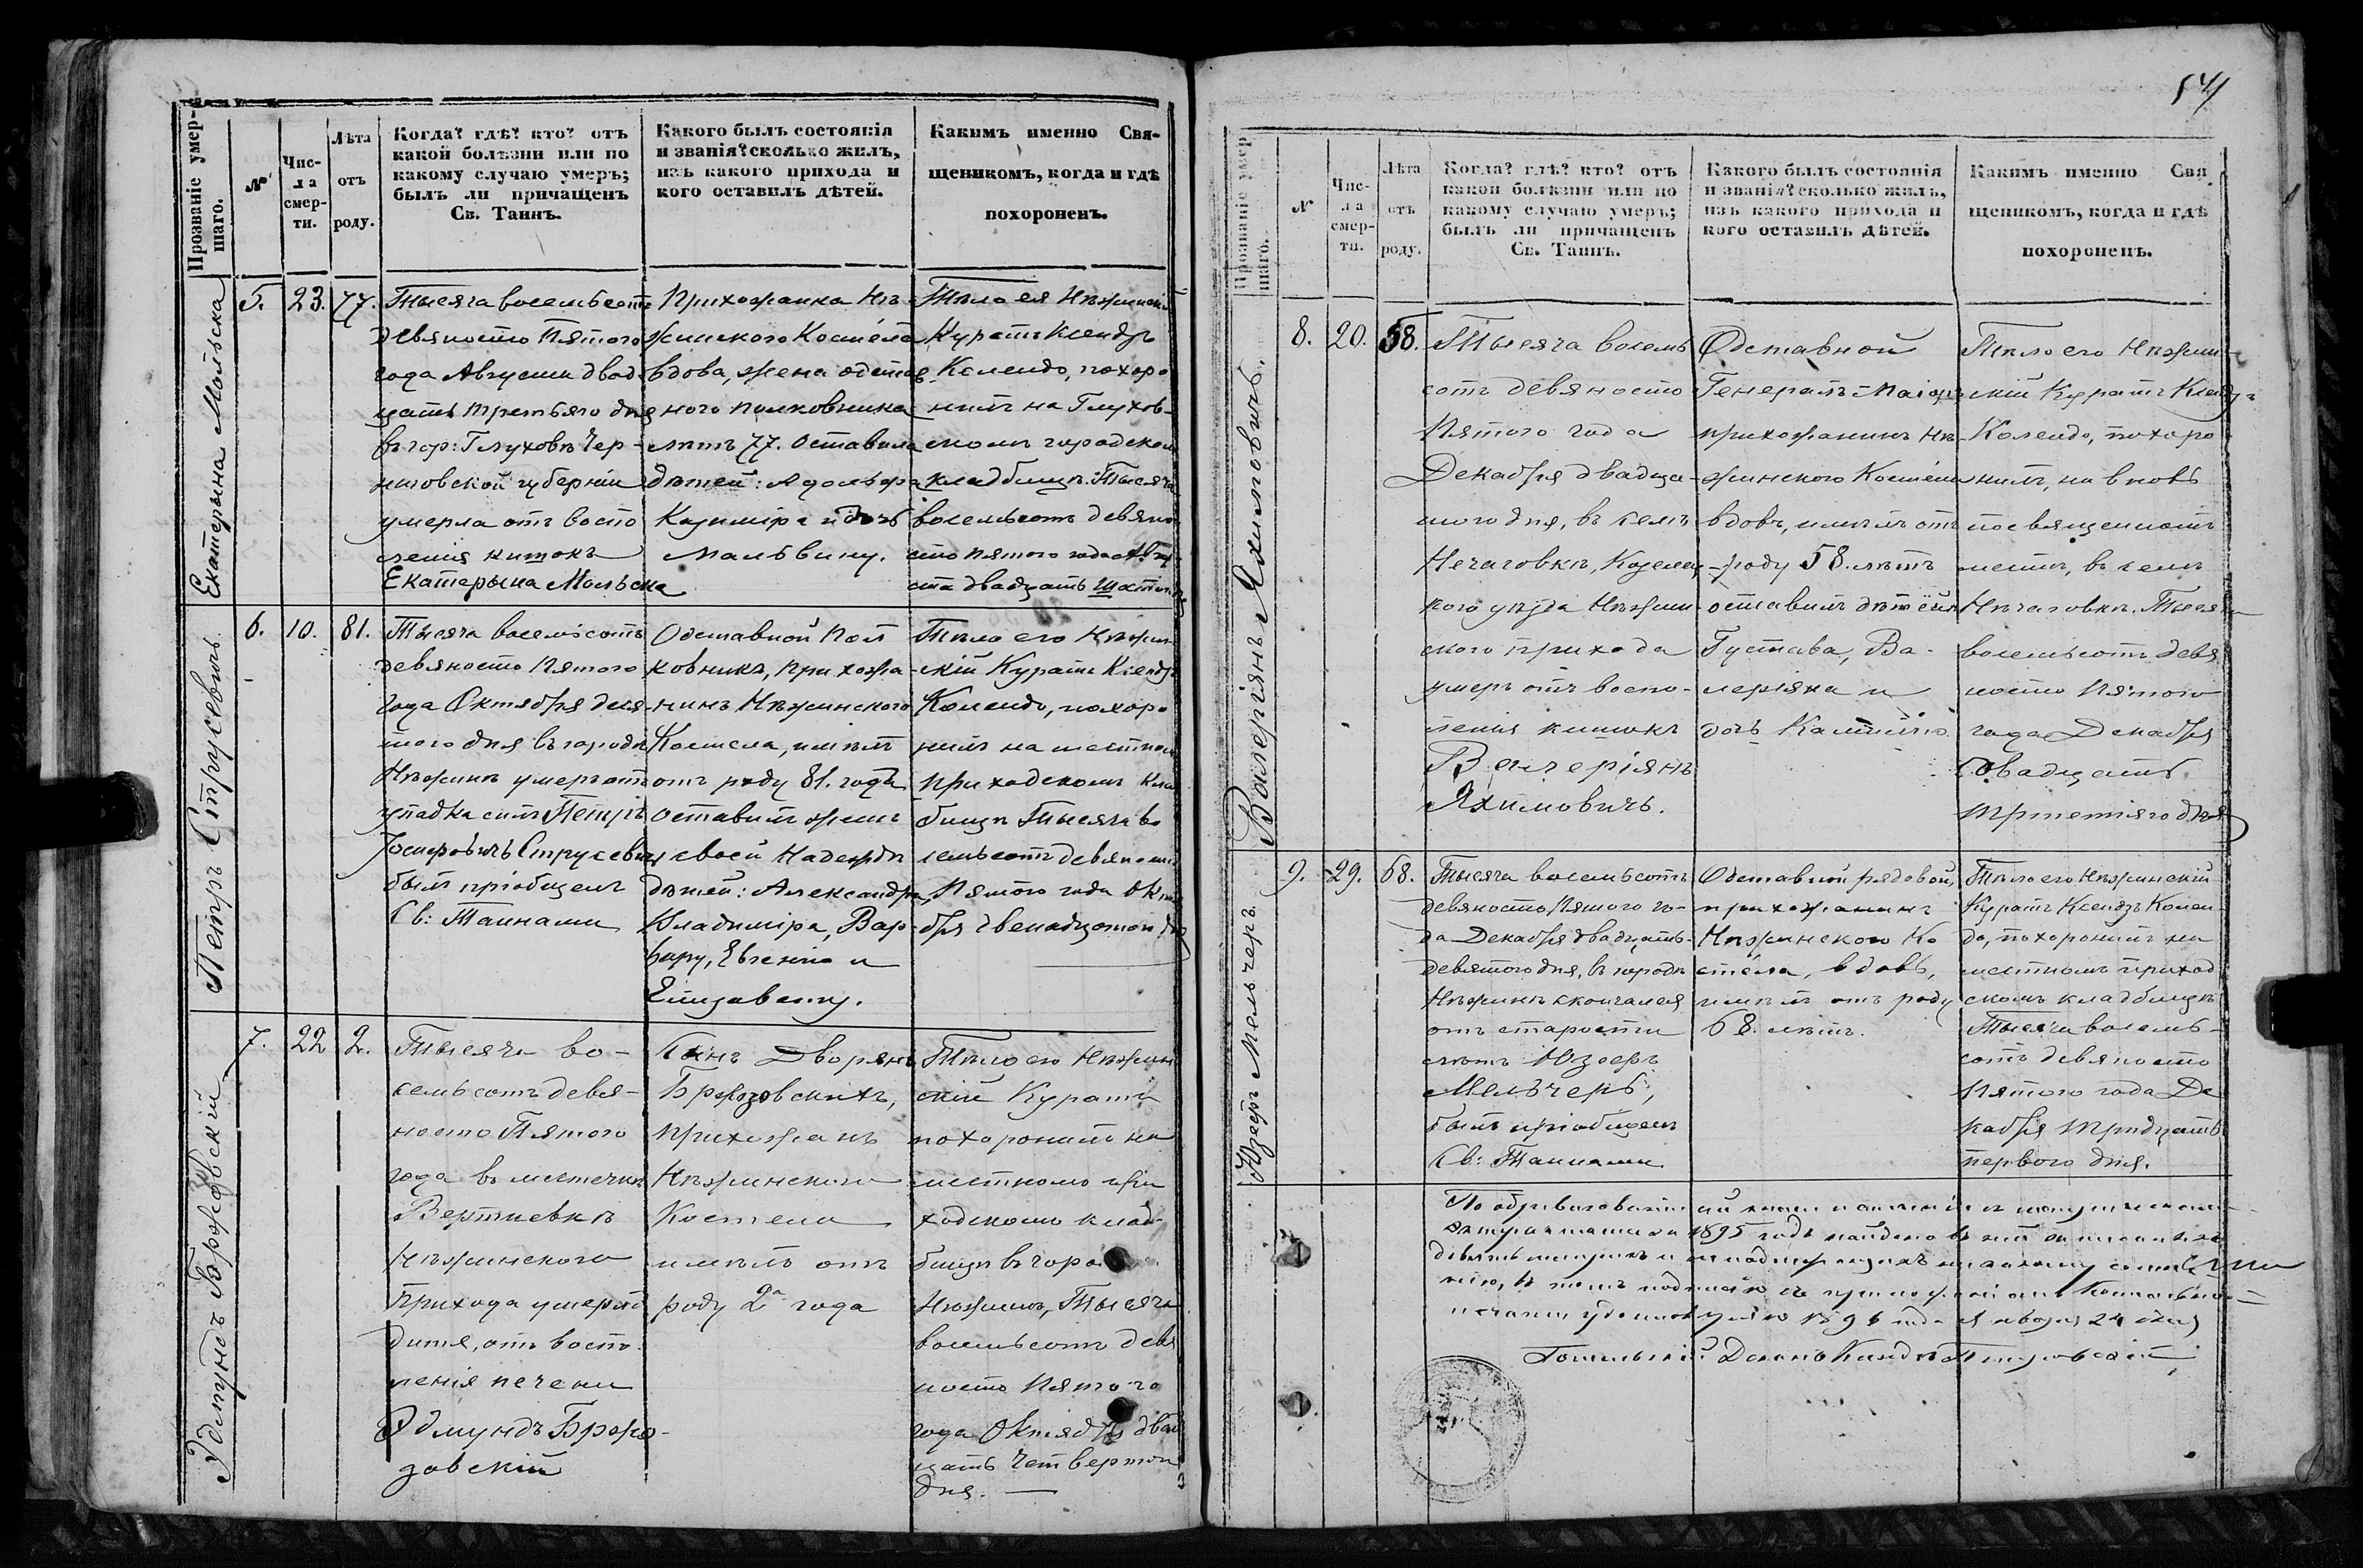 Прозваніе умер-
шаго.
№
Чис-
ла
смер-
ти.
Лѣта
отъ
роду.
Когда? гдѣ? кто? отъ
какой болѣзни или по
какому случаю умеръ;
былъ ли причащенъ
Св. Таинъ.
Какого былъ состоянія
и званія? сколько жилъ,
изъ какого прихода и
кого оставилъ дѣтей.
Какимъ именно Свя-
щенникомъ, когда и гдѣ
похороненъ.
Екатерына Мольска
5.
23.
77.
Тысяча восемьсотъ
девяносто Пятого
года Августа двад-
цать третьяго дня
въ гор: Глуховѣ Чер-
ниговской губерніи
умерла отъ воспо
ленія кишокъ
Екатерына Мольска
Прихожанка Нѣ-
жинского Костела
вдова, жена отстав
ного полковника
лѣтъ 77. Оставила
дѣтей: Адольфа
Казиміра и дочь
Мальвину.
Тѣло ея Нѣжинскій
Куратъ Ксендзъ
Колендо, похоро
нилъ на Глухов-
скомъ городском
кладбищѣ. Тысяча
восемьсотъ девяно
сто пятого года Авгу-
ста двадцать шостого
Петръ Струсевичъ.
6.
10.
81.
Тысяча восемьсотъ
девяносто Пятого
года Октября деся
того дня въ городѣ
Нѣжинѣ умеръ отъ
упадка силъ Петръ
Іосифовичъ Струсевичъ
былъ пріобщенъ
Св: Таинами
Одставной Пол
ковникъ, Прихожа
нинъ Нѣжинского
Костела, имѣлъ
отъ роду 81. годъ
оставилъ жену
своей Надежды
дѣтей: Александра,
Владиміра, Вар-
вару, Евгенію и
Елизавету.
Тѣло его Нѣжин
скій Куратъ Ксендзъ
Колендо, похоро
нилъ на местномъ
приходскомъ клад
бищѣ Тысяча во
семьсотъ девяносто
Пятого года Октя
бря двенадцатого дня
Эдмундъ Бржозовскій
7.
22
2.
Тысяча во-
семьсотъ девя-
носто Пятого
года въ местечкѣ
Вертиевкѣ
Нѣжинского
Прихода умерло
дитя, отъ воспо
ленія печени
Эдмундъ Бржо-
зовскій
Сынъ Дворянъ
Бржозовскихъ,
прихожанъ
Нѣжинского
Костела
имѣлъ отъ
роду 2а года
Тѣло его Нѣжин
скій Куратъ
похоронилъ на
местномъ при
ходскомъ клад-
бищѣ въ горо
Нѣжинѣ, Тысяча
восемьсотъ девя
носто Пятого
года Октября двад
цать Четвертого
дня.
54
Прозваніе умер
шаго.
№
Чис-
ла
смер-
ти.
Лѣта
отъ
роду.
Когда? гдѣ? кто? отъ
какой болѣзни или по
какому случаю умеръ;
былъ ли причащенъ
Св. Таинъ.
Какого былъ состоянія
и званія? сколько жилъ,
изъ какого прихода и
кого оставилъ дѣтей.
Какимъ именно Свя
щенникомъ, когда и гдѣ
похороненъ.
Валеріянъ Яхимовичъ.
8.
20.
58.
Тысяча восемь
сотъ девяносто
Пятого года
Декабря двадца-
того дня, въ селѣ
Нечаговкѣ, Козелец-
кого уѣзда Нѣжин
ского прихода
умеръ отъ воспо-
ленія кишокъ
Валеріянъ
Яхимовичъ.
Одставной
Генералъ-Маіоръ
прихожанинъ Нѣ-
жинского Костела
вдовъ, имѣлъ отъ
роду 58. лѣтъ
оставилъ дѣтей
Густава, Ва-
леріяна и
дочь
Тѣло его Нѣжин-
скій Куратъ Ксендзъ
Колендо, похоро
нилъ, на вновь
посвященномъ
местѣ, въ селѣ
Нечаговкѣ. Тысяча
восемьсотъ девя
носто Пятого
года Декабря
двадцать
третьяго дня
Юзефъ Мельчеръ.
9.
29.
68.
Тысяча восемьсотъ
девяносто Пятого го-
да Декабря двадцать-
девятого дня, въ городѣ
Нѣжинѣ скончался
отъ старости
лѣтъ Юзефъ
Мельчеръ,
былъ пріобщенъ
Св: Таинами
Одставной рядовой,
прихожанинъ
Нѣжинского Ко
стела, вдовъ,
имѣлъ отъ роду
68. лѣтъ.
Тѣло его Нѣжинскій
Куратъ Ксендзъ Колен-
до, похоронилъ на
местномъ приход
скомъ кладбищѣ
Тысяча восемь-
сотъ девяносто
Пятого года Де
кабря тридцать
первого дня.
По обревизованіи
1895 годъ найдено въ ней
девять
печати 1896 года Января 24 дня
Гомельскій Деканъ